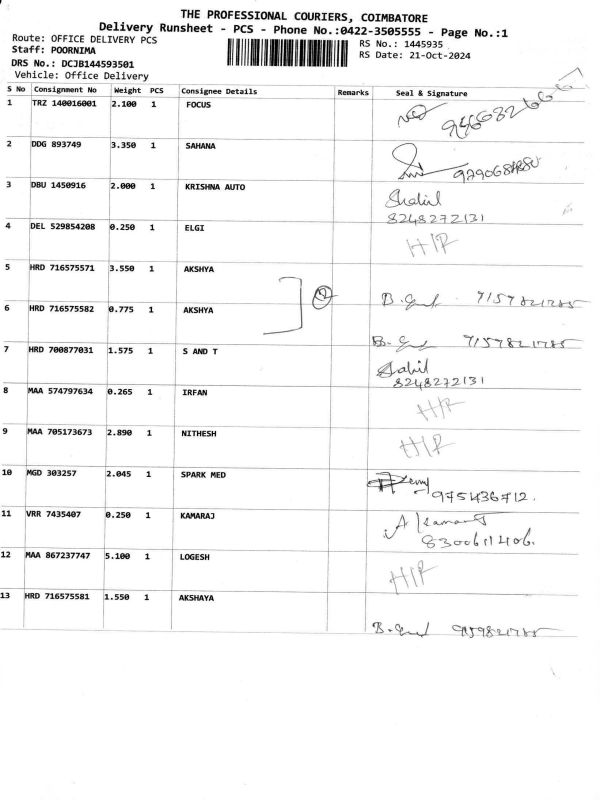 THE PROFESSIONAL COURIERS, COIMBATORE
Delivery Runsheet - PCS - Phone No.:0422-3505555 - Page No.:1
Route: OFFICE DELIVERY PCS
RS No.: 1445935
Staff: POORNIMA
RS Date: 21-Oct-2024
DRS No.: DCJB144593501
Vehicle: Office Delivery
S No Consignment No Weight PCS Consignee Details Remarks Seal & Signature
1 TRZ 140016001 2.100 1 FOCUS
2 DDG 893749 3.350 1 SAHANA
3 DBU 1450916 2.000 1 KRISHNA AUTO Shahil
8248272131
4 DEL 529854208 0.250 1 ELGI H/R
5 HRD 716575571 3.550 1 AKSHYA
6 HRD 716575582 0.775 1 AKSHYA
7 HRD 700877031 1.575 1 S AND T Shahil
8248272131
8 MAA 574797634 0.265 1 IRFAN H/R
9 MAA 705173673 2.890 1 NITHESH H/R
10 MGD 303257 2.045 1 SPARK MED
975436712.
11 VRR 7435407 0.250 1 KAMARAJ
8300611406.
12 MAA 867237747 5.100 1 LOGESH H/R
13 HRD 716575581 1.550 1 AKSHAYA